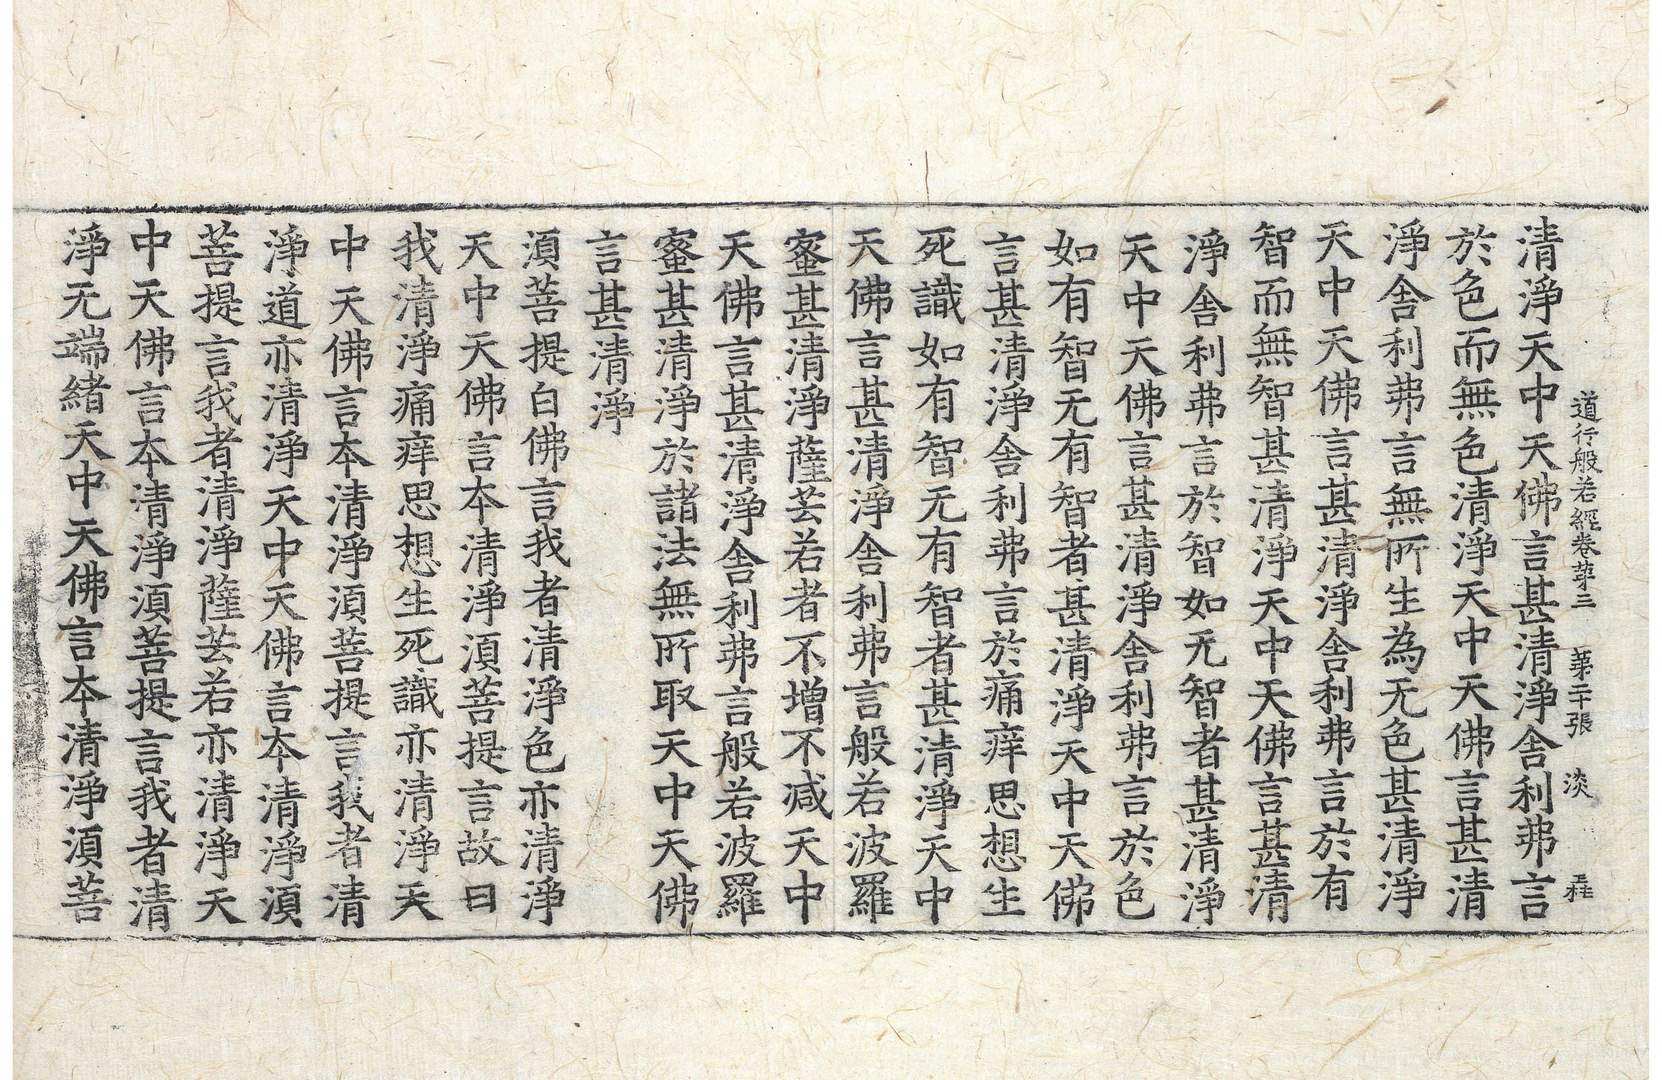 道行般若經卷苐三 苐二十張 淡
清淨天中天佛言甚清淨舍利弗言
於色而無色清淨天中天佛言甚清
淨舍利弗言無所生為无色甚清淨
天中天佛言甚清淨舍利弗言於有
智而無智甚清淨天中天佛言甚清
淨舍利弗言於智如无智者甚清淨
天中天佛言甚清淨舍利弗言於色
如有智无有智者甚清淨天中天佛
言甚清淨舍利弗言於痛痒思想生
死識如有智无有智者甚清淨天中
天佛言甚清淨舍利弗言般若波羅
蜜甚清淨薩芸若者不增不减天中
天佛言甚清淨舍利弗言般若波羅
蜜甚清淨於諸法無所取天中天佛
言甚清淨
須菩提白佛言我者清淨色亦清淨
天中天佛言本清淨須菩提言故曰
我清淨痛痒思想生死識亦清淨天
中天佛言本清淨須菩提言我者清
淨道亦清淨天中天佛言本清淨須
菩提言我者清淨薩芸若亦清淨天
中天佛言本清淨須菩提言我者清
淨无端緒天中天佛言本清淨須菩